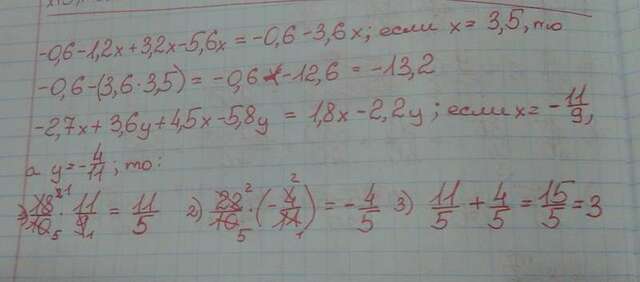 -0,6-1,2x+3,2x-5,6x = -0,6-3,6x; если x= 3,5, то
-0,6-(3,6·3,5) = -0,6-12,6 = -13,2
-2,7x+3,6y+4,5x-5,8y = 1,8x-2,2y; если x= -11/9,
а y=-4/11; то:
1) 18/10 · 11/9 = 11/5 2) 22/10 · (-4/11) = -4/5 3) 11/5 + 4/5 = 15/5 = 3